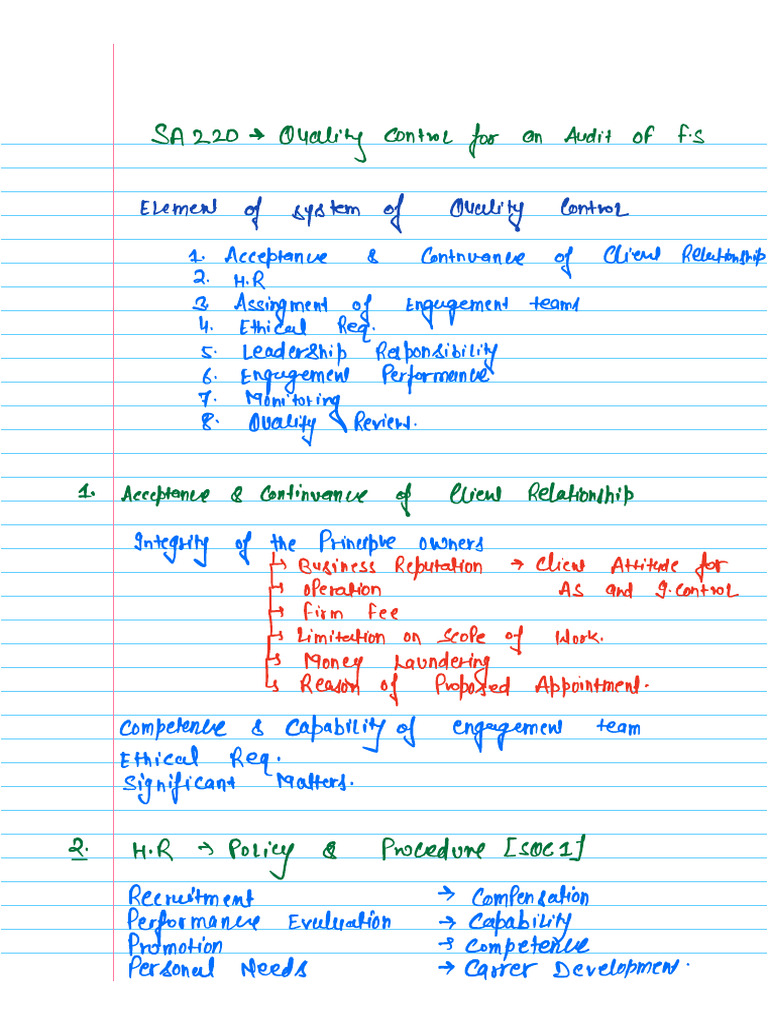 SA 220 → Quality Control for an Audit of F.S
Element of system of Quality Control
1. Acceptance & Continuance of Client Relationship
2. H.R
3. Assingment of Engagement teams
4. Ethical Req.
5. Leadership Responsibility
6. Engagement Performance
7. Monitoring
8. Quality Review.
1. Acceptance & Continuance of Client Relationship
Integrity of the Principle owners
↳ Business Reputation → Client Attitude for
↳ operation AS and I.control
↳ Firm Fee
↳ Limitation on scope of work.
↳ Money Laundering
↳ Reason of Proposed Appointment.
Competence & Capability of engagement team
Ethical Req.
Significant Matters.
2. H.R → Policy & Procedure [SQC1]
Recruitment → Compensation
Performance Evaluation → Capability
Promotion → Competence
Personal Needs → Carrer Development.